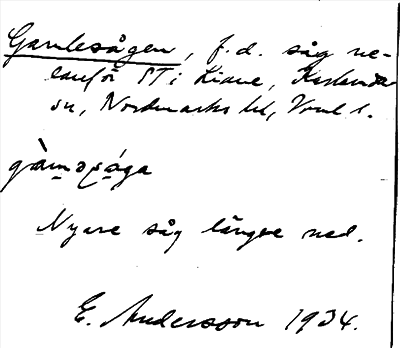 Gamlesågen, f.d. såg ne-
lanför ST i Liane,
sn, Nordmarks hd, Vrml l.
gàmǝsǻga
Nyare såg längre ned.
E. Andersson 1934.